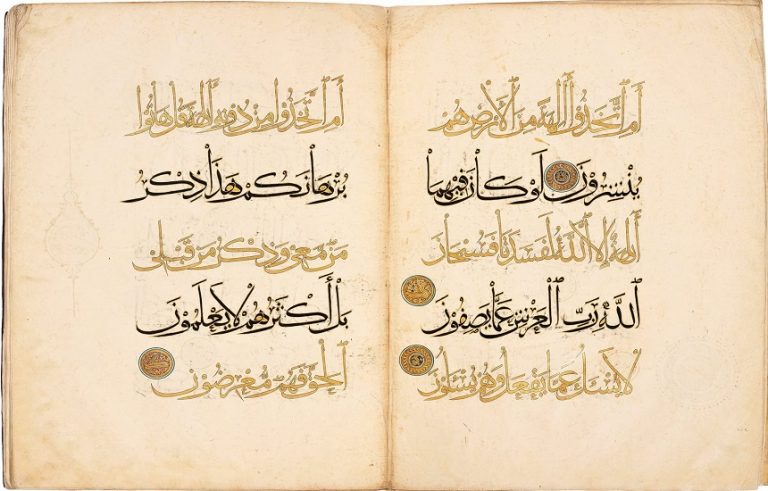 أَمِ اتَّخَذُوا آلِهَةً مِنَ الْأَرْضِ هُمْ
يُنْشِرُونَ لَوْ كَانَ فِيهِمَا
آلِهَةٌ إِلَّا اللَّهُ لَفَسَدَتَا فَسُبْحَانَ
اللَّهِ رَبِّ الْعَرْشِ عَمَّا يَصِفُونَ
لَا يُسْأَلُ عَمَّا يَفْعَلُ وَهُمْ يُسْأَلُونَ
أَمِ اتَّخَذُوا مِنْ دُونِهِ آلِهَةً قُلْ هَاتُوا
بُرْهَانَكُمْ هَذَا ذِكْرُ
مَنْ مَعِيَ وَذِكْرُ مَنْ قَبْلِي
بَلْ أَكْثَرُهُمْ لَا يَعْلَمُونَ
الْحَقَّ فَهُمْ مُعْرِضُونَ